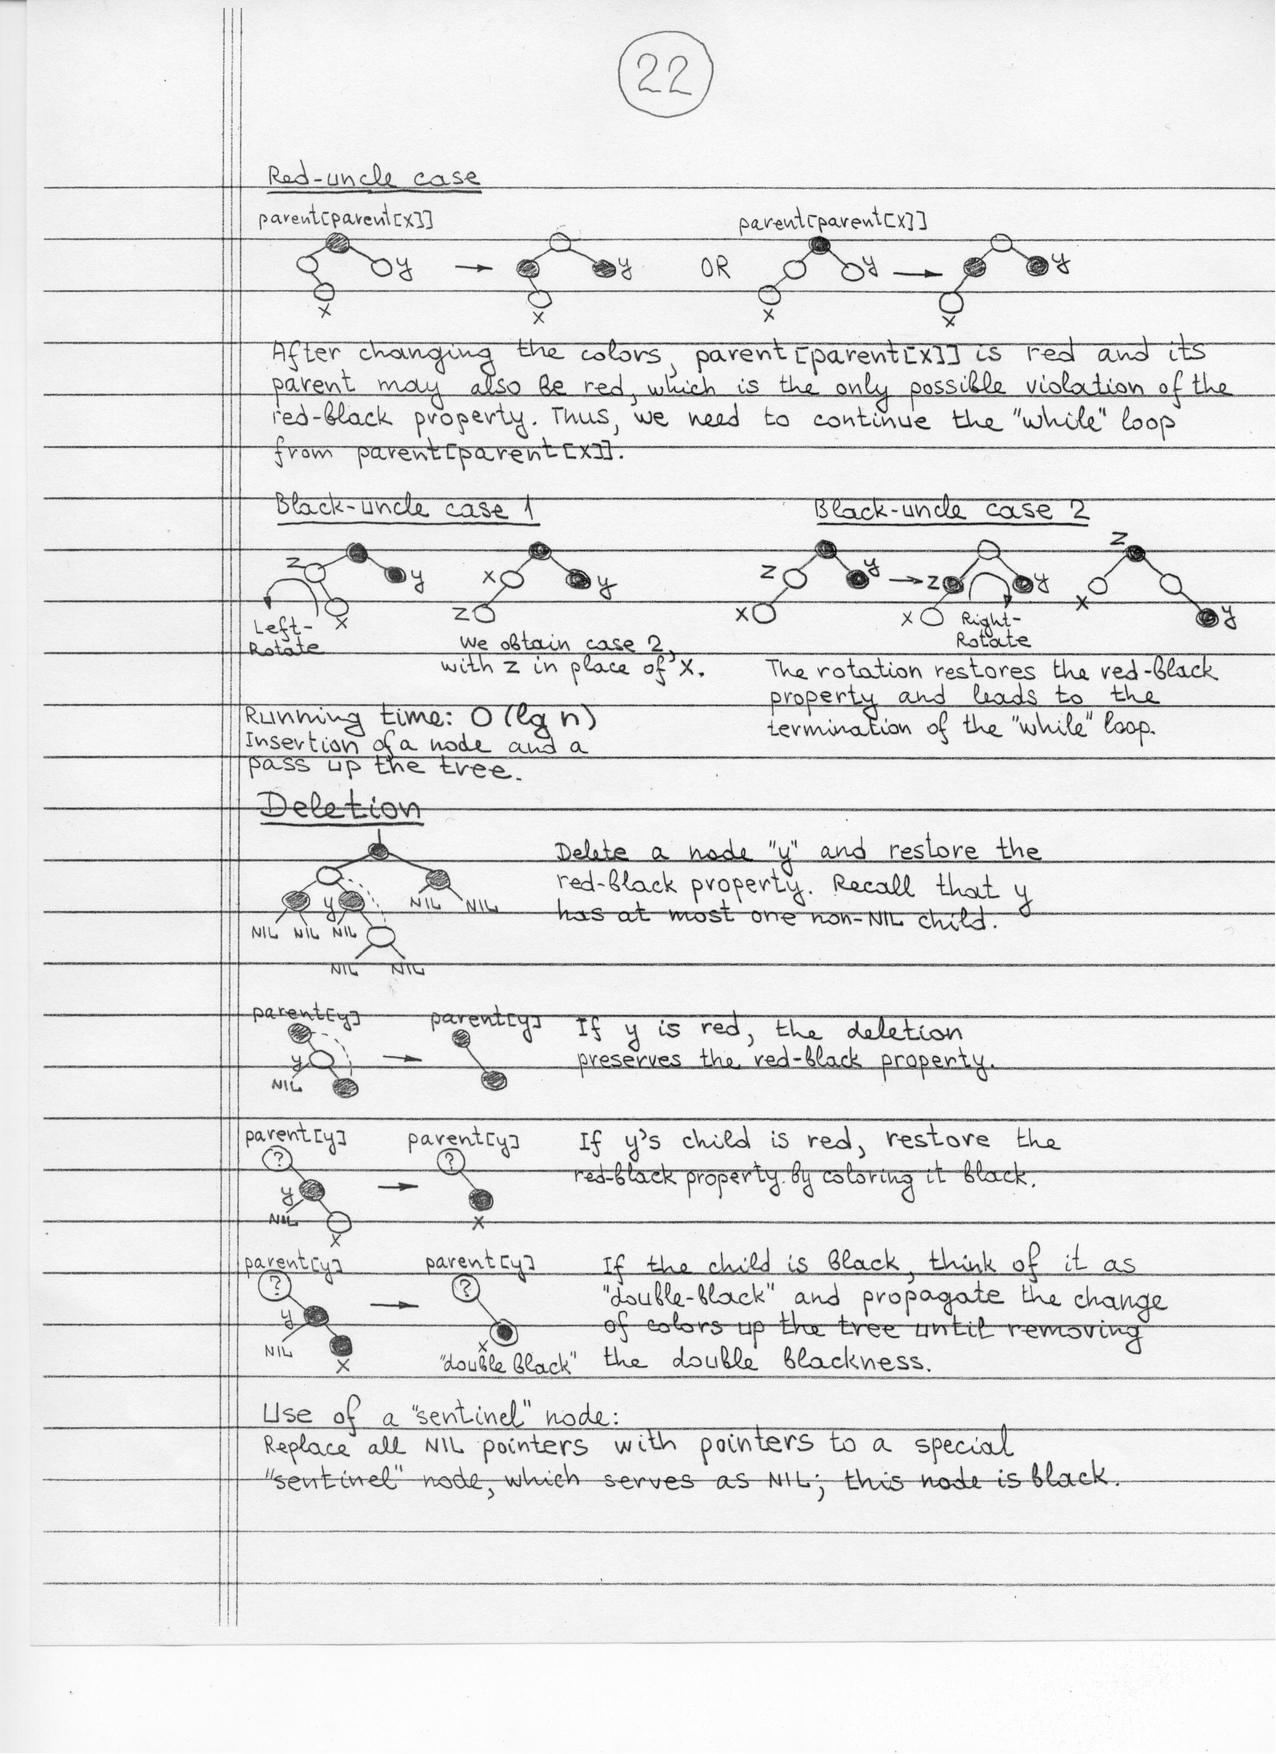 22
Red-uncle case
parent[parent[x]]
y
x
→
y
x
OR
parent[parent[x]]
y
x
→
y
x
After changing the colors, parent[parent[x]] is red and its
parent may also be red, which is the only possible violation of the
red-black property. Thus, we need to continue the "while" loop
from parent[parent[x]].
Black-uncle case 1
z
y
x
Left-
Rotate
x
y
z
We obtain case 2,
with z in place of x.
Black-uncle case 2
z
y
x
→
z
y
x
Right-
Rotate
z
x
y
The rotation restores the red-black
property and leads to the
termination of the "while" loop.
Running time: O(lg n)
Insertion of a node and a
pass up the tree.
Deletion
y
NIL NIL
NIL NIL NIL
NIL NIL
Delete a node "y" and restore the
red-black property. Recall that y
has at most one non-NIL child.
parent[y]
y
NIL
→
parent[y]
If y is red, the deletion
preserves the red-black property.
parent[y]
?
y
NIL
x
→
parent[y]
?
x
If y's child is red, restore the
red-black property by coloring it black.
parent[y]
?
y
NIL
x
→
parent[y]
?
x
"double black"
If the child is black, think of it as
"double-black" and propagate the change
of colors up the tree until removing
the double blackness.
Use of a "sentinel" node:
Replace all NIL pointers with pointers to a special
"sentinel" node, which serves as NIL; this node is black.